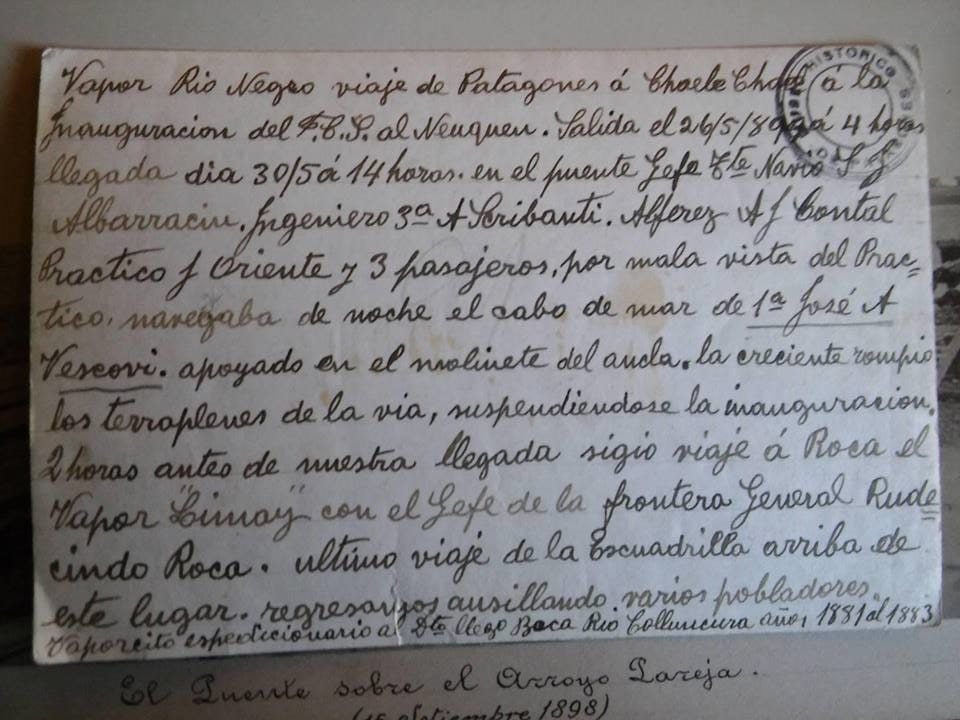 Vapor Rio Negro viaje de Patagones á Choele Choel á la
Inauguracion del F.C.S. al Neuquen. Salida el 26/5/89 á 4 horas
llegada dia 30/5 á 14 horas. en el puente Gefe Tte Navio S J
Albarracin. Ingeniero 3ª A Scribanti. Alferez A J Contal
Practico J Oriente y 3 pasajeros, por mala vista del Prac=
tico. navegaba de noche el cabo de mar de 1ª José A
Vescovi. apoyado en el molinete del ancla. la creciente rompio
los terraplenes de la via, suspendiendose la inauguracion.
2 horas antes de nuestra llegada sigio viaje á Roca el
Vapor "Limay" con el Gefe de la frontera General Rude
cindo Roca. ultimo viaje de la escuadrilla arriba de
este lugar. regresamos ausillando varios pobladores.
Vaporcito espedicionario al Dto llego Boca Rio Colluncura años 1881 al 1883
HISTORICO
El Puente sobre el Arroyo Pareja.
1898)